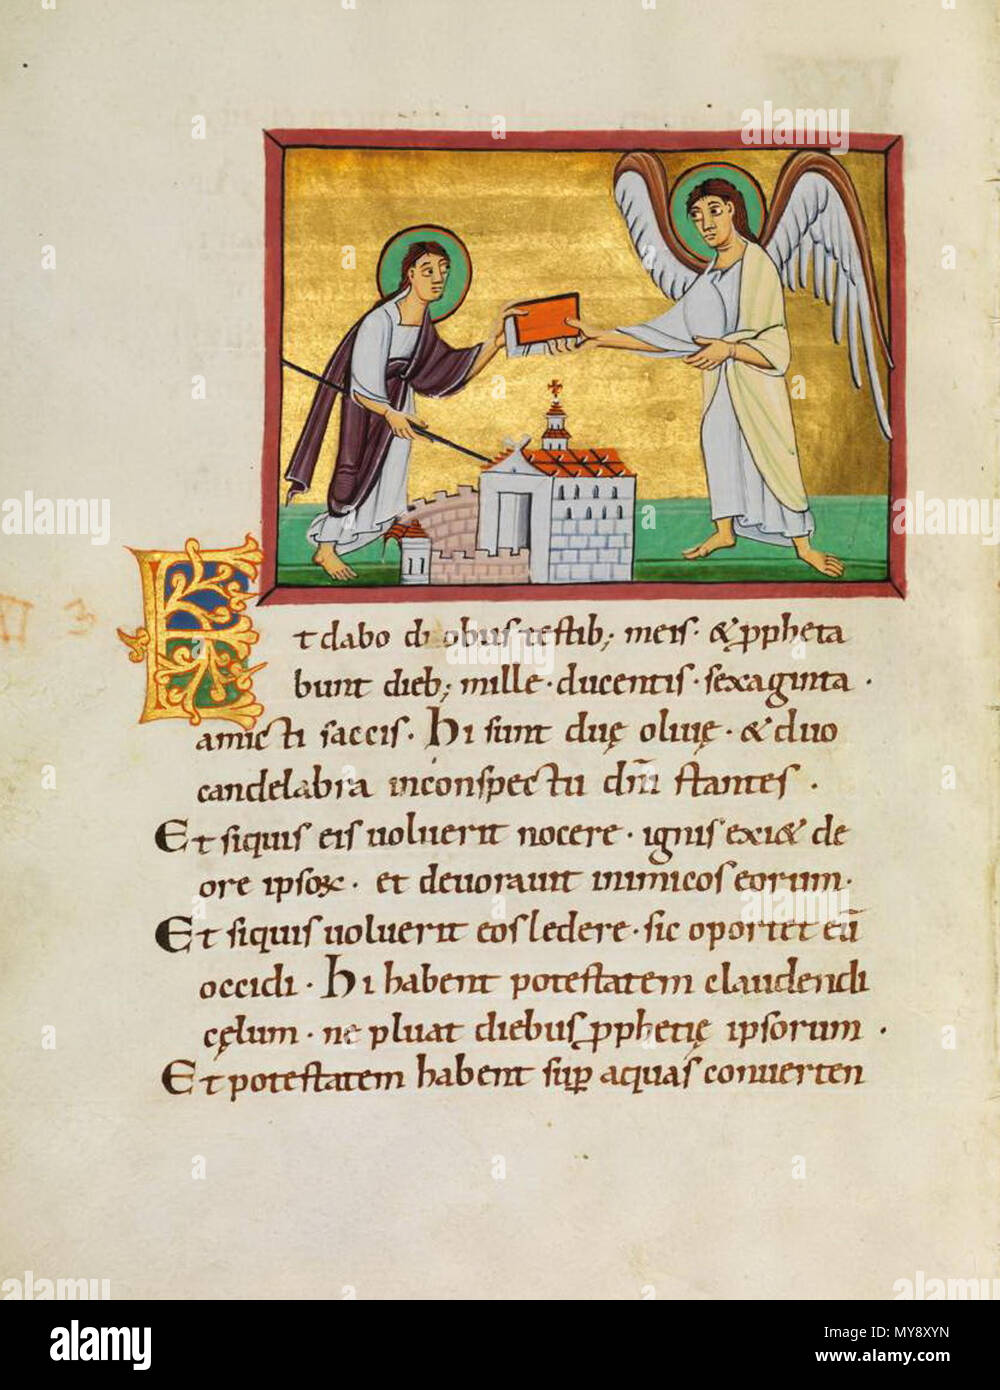 Et dabo duobus testib; meis · & ꝓpheta
bunt dieb; mille · ducentis · sexaginta ·
amicti saccis · Hi sunt duę oliuę · & duo
candelabra inconspectu dn̄i stantes ·
Et siquis eis uoluerit nocere · ignis exi& de
ore ipsoꝝ · et deuorauit inimicos eorum ·
Et siquis uoluerit eos ledere · sic oportet eū
occidi · Hi habent potestatem claudendi
cęlum · ne pluat diebus ꝓphetię ipsorum ·
Et potestatem habent suꝑ aquas conuerten
alamy
Image ID: MY8XYN
www.alamy.com